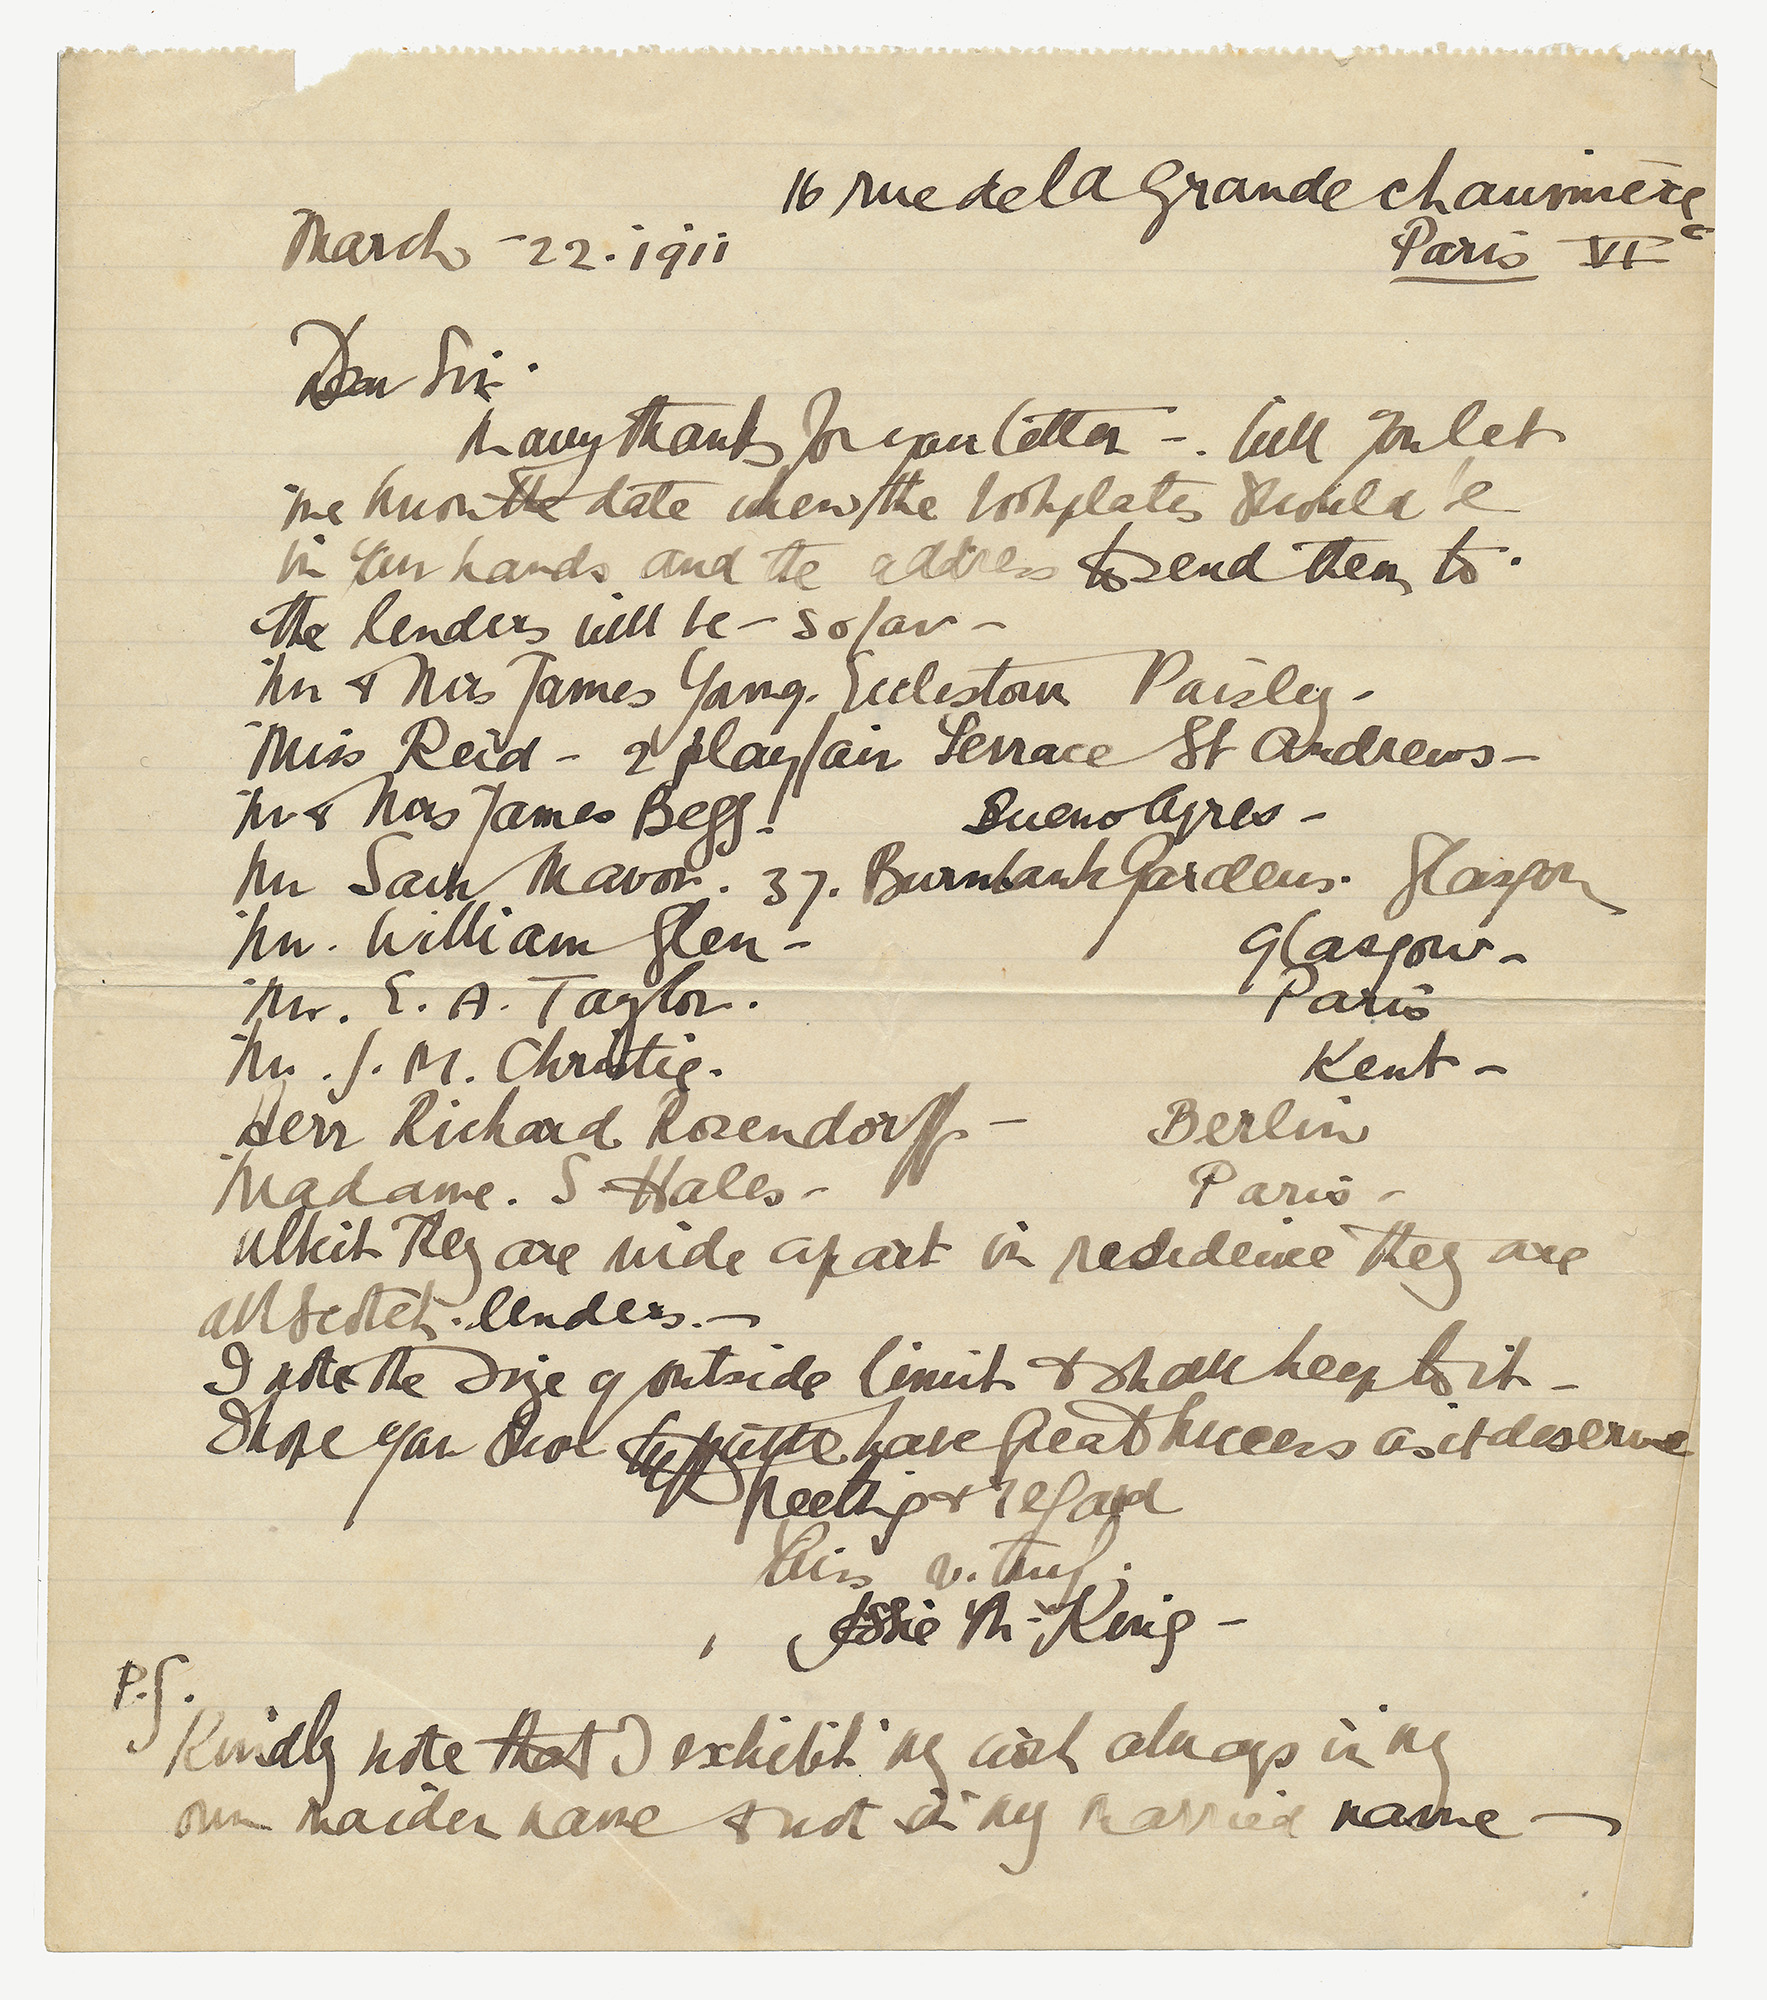 16 rue de la Grande chaumière
March - 22 . 1911
Paris VIe
Dear Sir.
Many thanks for your letter - . Will you let
me know the date when the bookplates should be
in your hands and the address to send them to.
the lenders will be - so far -
Mr & Mrs James Young. Paisley -
Miss Reid - 2 playfair Terrace St Andrews -
Mr & Mrs James Begg. Buenos Ayres -
Mr Sam Mavor. 37. Burnbank Gardens. Glasgow
Mr. William Glen - Glasgow -
Mr. E. A. Taylor. Paris
Mr. J. M. Christie. Kent -
Herr Richard Rosendorff - Berlin
Madame. S. Hales - Paris -
Whilst they are wide apart in residence they are
all Scotch. lenders. -
I note the size of outside limit & shall keep to it -
I hope your show have great success as it deserve
greeting & regard
Yours v. truly.
Jessie M. King -
P.S.
Kindly note that I exhibit my work always in my
own maiden name & not in my married name -